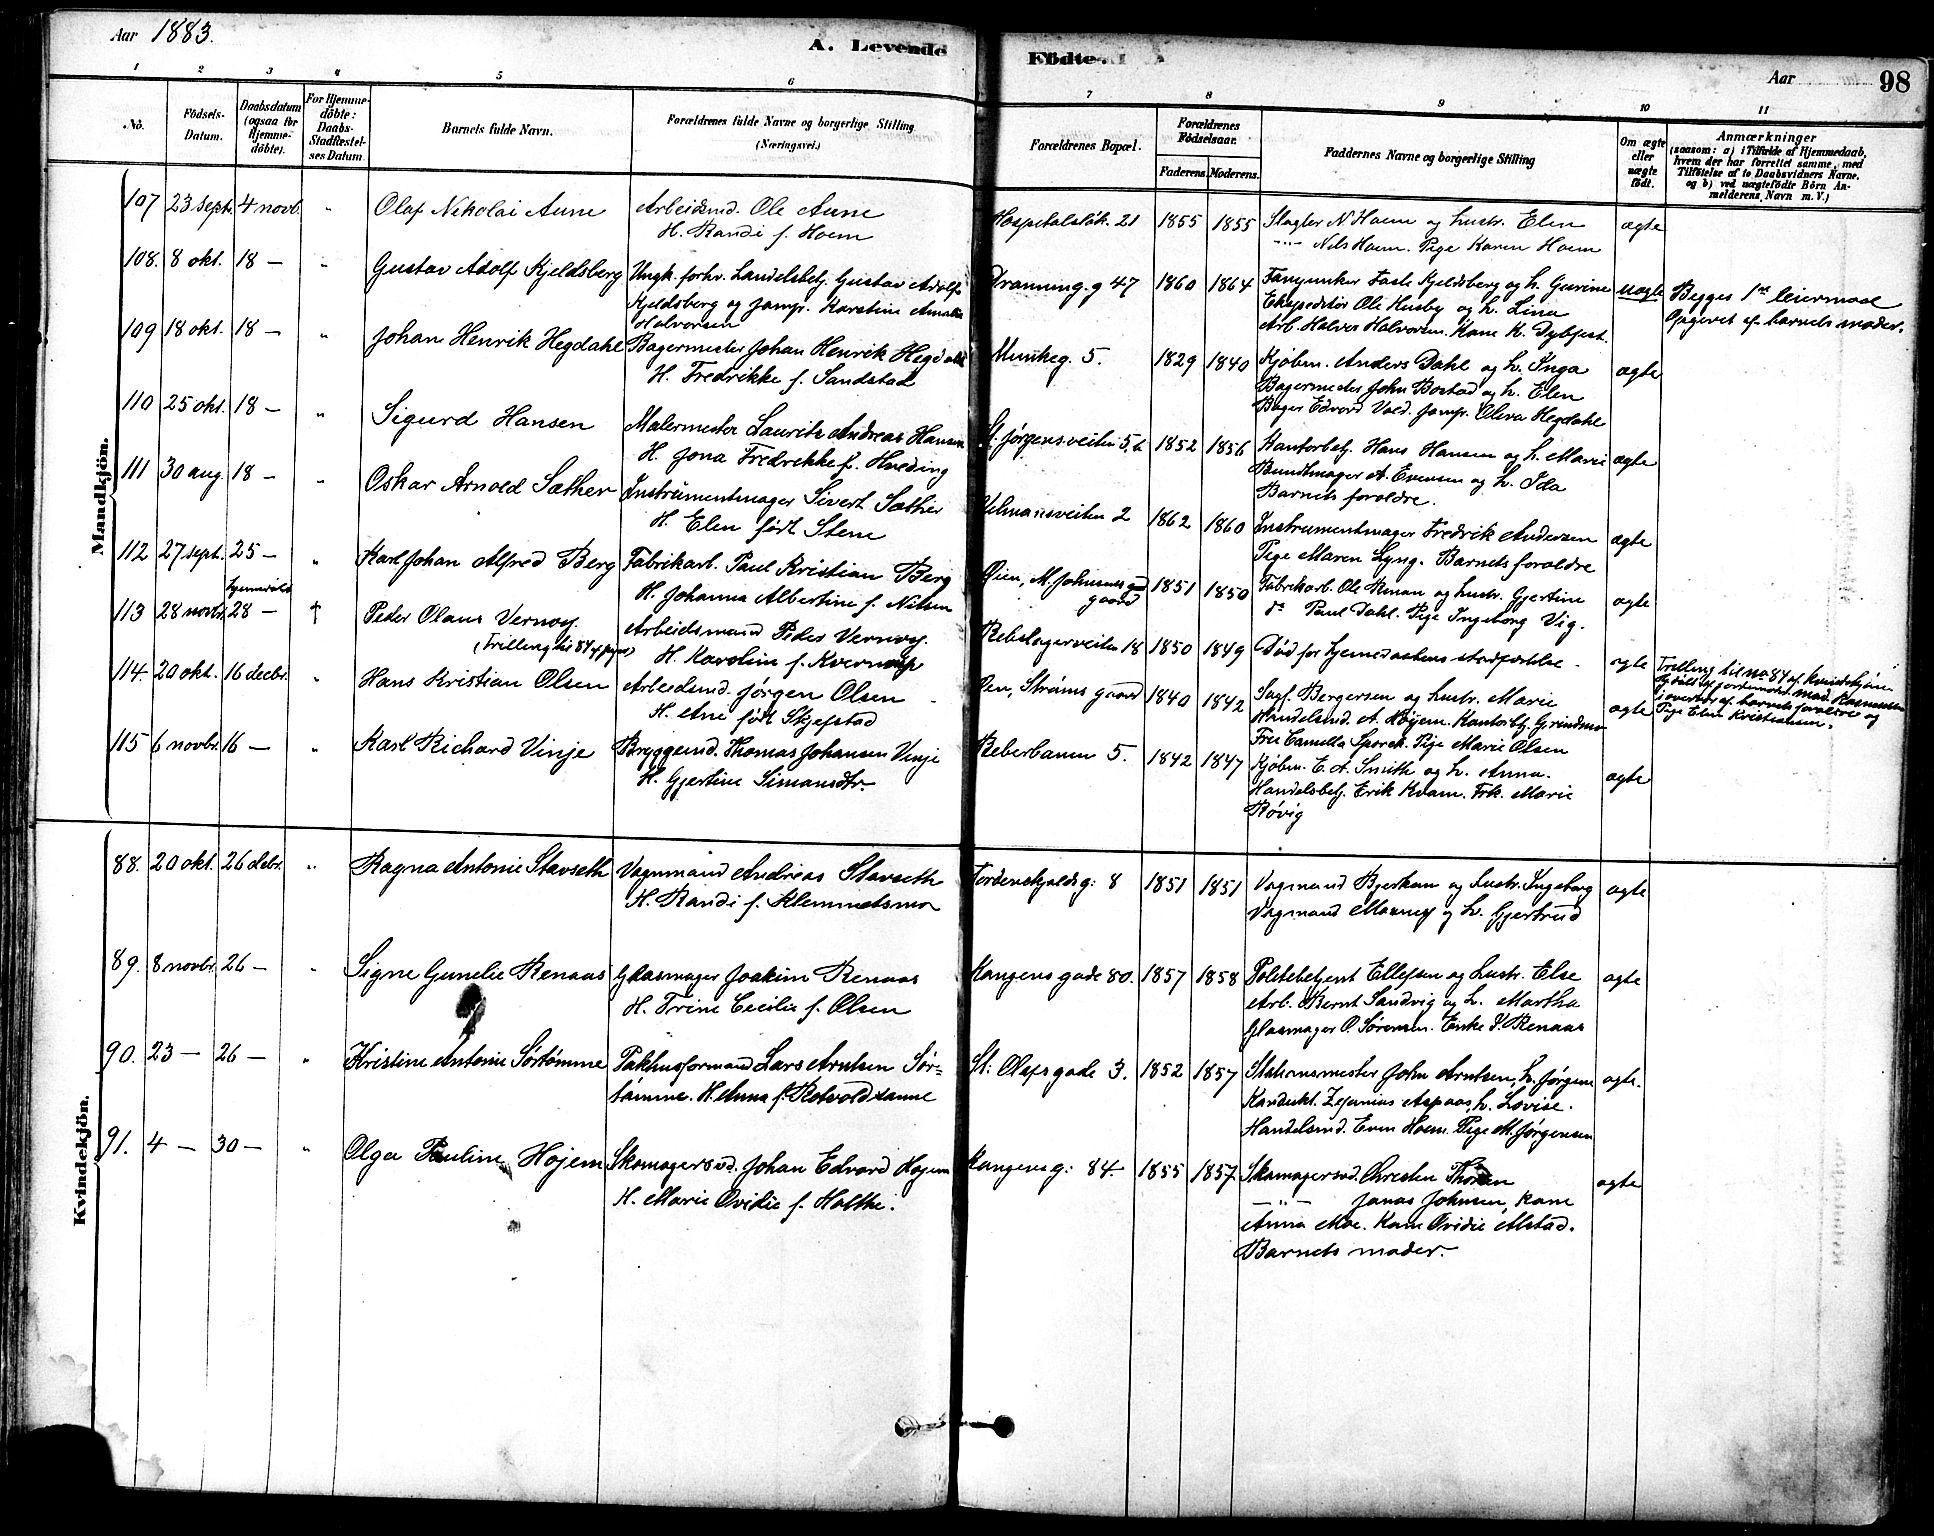 Aar 1883.
A. Levende Födte.
Aar 98
1 2 3 4 5 6 7 8 9 10 11
No.
Födsels-Datum.
Daabsdatum (ogsaa for Hjemmedöbte).
For Hjemmedöbte: Daabs-Stadfæstelses Datum.
Barnets fulde Navn.
Forældrenes fulde Navne og borgerlige Stilling (Næringsvei.)
Forældrenes Bopæl.
Forældrenes Födselsaar. Faderens. Moderens.
Faddernes Navne og borgerlige Stilling
Om ægte eller uægte födt.
Anmærkninger (saasom: a) i Tilfælde af Hjemmedaab, hvem der har forrettet samme, med Tilföielse af to Daabsvidners Navne, og b) ved uægtefödte Börn Anmelderens Navn m. V.)
Mandkjön.
107 23 sept. 4 novb. " Olaf Nikolai Aune Arbeidsmd. Ole Aune Hospitalsløk. 21 1855 1855 Slagter N. Hoem og hustr. Elen ægte
H. Randi f. Hoem Nils Hoem. Pige Karen Hoem
108. 8 okt. 18 — " Gustav Adolf Kjeldsberg Ungk. forhv. Landelsbetj. Gustav Adolf Dronning. g 47 1860 1864 Kjeldsberg og h. Gurine uægte Begges 1ste leiermaal
Kjeldsberg og jomfr. Karstine Amalia Ekspeditør Ole Husby og h. Lina Opgivet af barnets moder.
Halvorsen Arb. Halvor Halvorsen. Kone K. Dybfest.
109 18 okt. 18 — " Johan Henrik Hegdahl Bagermester Johan Henrik Hegdahl Munkeg. 5. 1829 1840 Kjøbm. Anders Dahl og h. Inga ægte
H. Fredrikke f. Sandstad Bagermester John Bostad og h. Elen
Bager Edvard Vold. Jomfr. Oleva Hegdahl
110 25 okt. 18 — " Sigurd Hansen Malermester Laurits Andreas Hansen St. Jørgensveiten 5,b 1852 1856 Kontorbetj. Hans Hansen og h. Marie ægte
H. Jona Fredrikke f. Hveding Bundtmager A. Evensen og h. Ida
Barnets forældre.
111 30 aug. 18 — " Oskar Arnold Sæther Instrumentmager Sivert Sæther 2 1862 1860 Instrumentmager Fredrik Andersen ægte
H. Elen født Stene Pige Maren Lyng. Barnets forældre
112 27 sept. 25 — " Karl Johan Alfred Berg Fabrikarb. Paul Kristian Berg Øien, M. Johnsens gaard 1851 1850 Fabrikarb. Ole Renan og hustr. Gjertine ægte
H. Johanna Albertine f. Nilsen do Paul Dahl. Pige Ingeborg Vig.
113 28 novbr. hjemmedøbt 28 — † Peder Olaus Vernøy Arbeidsmand Peder Vernøy. Rebslagerveiten 18 1850 1849 Død før hjemmedaabens stadfæstelse. ægte Trilling til no 84 af kvindekjøn.
(Trilling til 84 piger) H. Karoline f. Kvernmo
114. 20 okt. 16 decbr. " Hans Kristian Olsen Arbeidsmd. Jørgen Olsen Øen, Strøms gaard 1840 1842 Sagf. Bergersen og hustr. Marie ægte i overvær af barnets forældre og
H. Ane født Skjefstad Handelsmd. A. Højem. Kontorbetj. Grindmo Pige Elen Kristiansen.
Frk Camilla Sporck. Pige Marie Olsen
115 6 novbr. 16 — " Karl Richard Vinje Bryggemd. Thomas Johansen Vinje Reberbanen 5. 1842 1847 Kjøbm. E. A. Smith og h. Anna. ægte
H. Gjertine Simonsdtr. Handelsbetj. Erik Kvam. Frk. Marie
Røvig
Kvindekjön.
88. 20 okt. 26 debr. " Ragna Antonie Stavseth Vognmand Andreas Stavseth Tordenskjoldsg: 8 1851 1851 Vognmand Bjerkan og hustr. Ingeborg ægte
H. Randi f. Klemmetsmo Vognmand Moxnes og h. Gjertrud
89. 8 novbr. 26 — " Signe Gunelie Renaas Glasmager Joakim Renaas Kongens gade 80. 1857 1858 Politibetjent Ellefsen og hustr. Else ægte
H. Trine Cecilie f. Olsen Arb. Bernt Sandvig og h. Martha
Glasmager O. Sørensen. Enke I. Renaas
90. 23 — 26 — " Kristine Antonie Sørtømme Pakhusformand Lars Arntsen Sør= St: Olafs gade 3. 1852 1857 Stationsmester John Arntsen, h. Jørgine ægte.
tømme. H. Anna f. Rotvoldsaune Kondukt. Zefanias Aspaas, h. Lovise.
Handelsmd. Even Hoem. Pige M. Jørgensen
91. 4 — 30 — " Olga Pauline Højem Skomagersvd. Johan Edvard Højem Kongensg: 84. 1855 1857 Skomagersvd. Christen Thoresen ægte
H. Marie Ovidie f. Holthe. —"— Jonas Johnsen, kone
Anna Moe. Kone Ovidie Alstad.
Barnets moder.